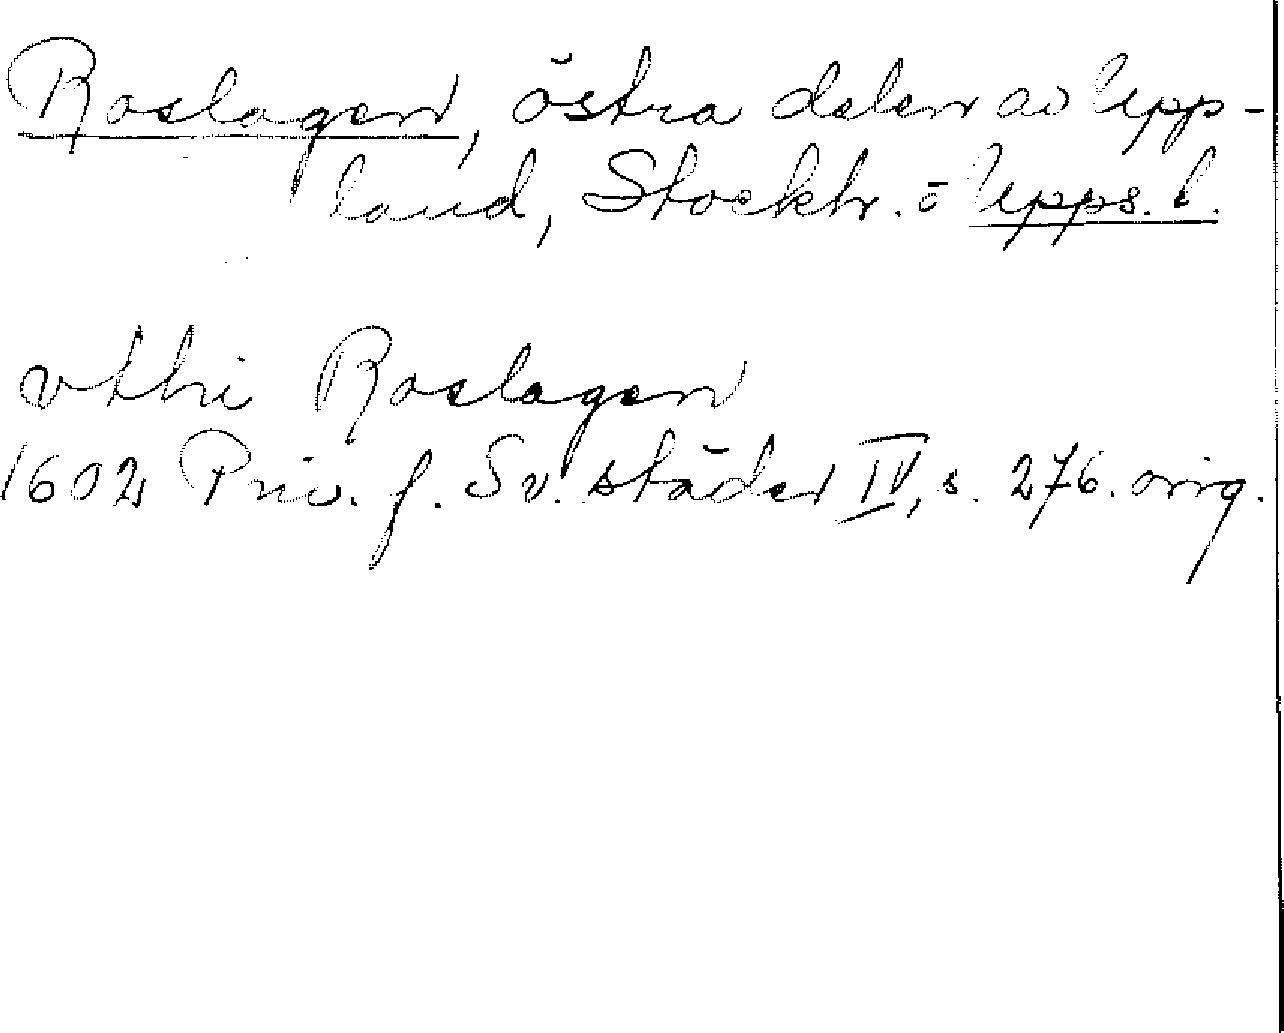 Roslagen, östra delen av Upp-
land, Stockh. o Upps. l.
vthi Roslagen
1602 Priv. f. Sv. städer IV, s. 276. orig.